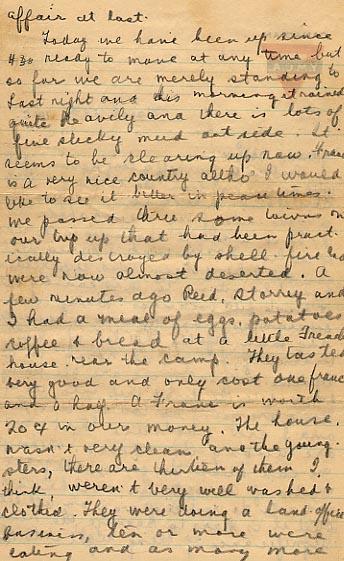 affair at last.
Today we have been up since
4:30 ready to move at any time but
so far we are merely standing to
Last night and this morning it rained
quite heavily and there is lots of
fine sticky mud outside. It
seems to be clearing up now. France
is a very nice country altho I would
like to see it better in peace times.
We passed three some towns on
our trip up that had been pract-
ically destroyed by shell fire and
were now almost deserted. A
few minutes ago Reed, Storrey and
I had a meal of eggs, potatoes
coffee & bread at a little French
house near the camp. They tasted
very good and only cost one franc
and a half. A Franc is worth
20¢ in our money. The house
wasn't very clean and the young-
sters, there are thirteen of them I
think, weren't very well washed &
clothed. They were doing a land-office
business, ten or more were
eating and as many more